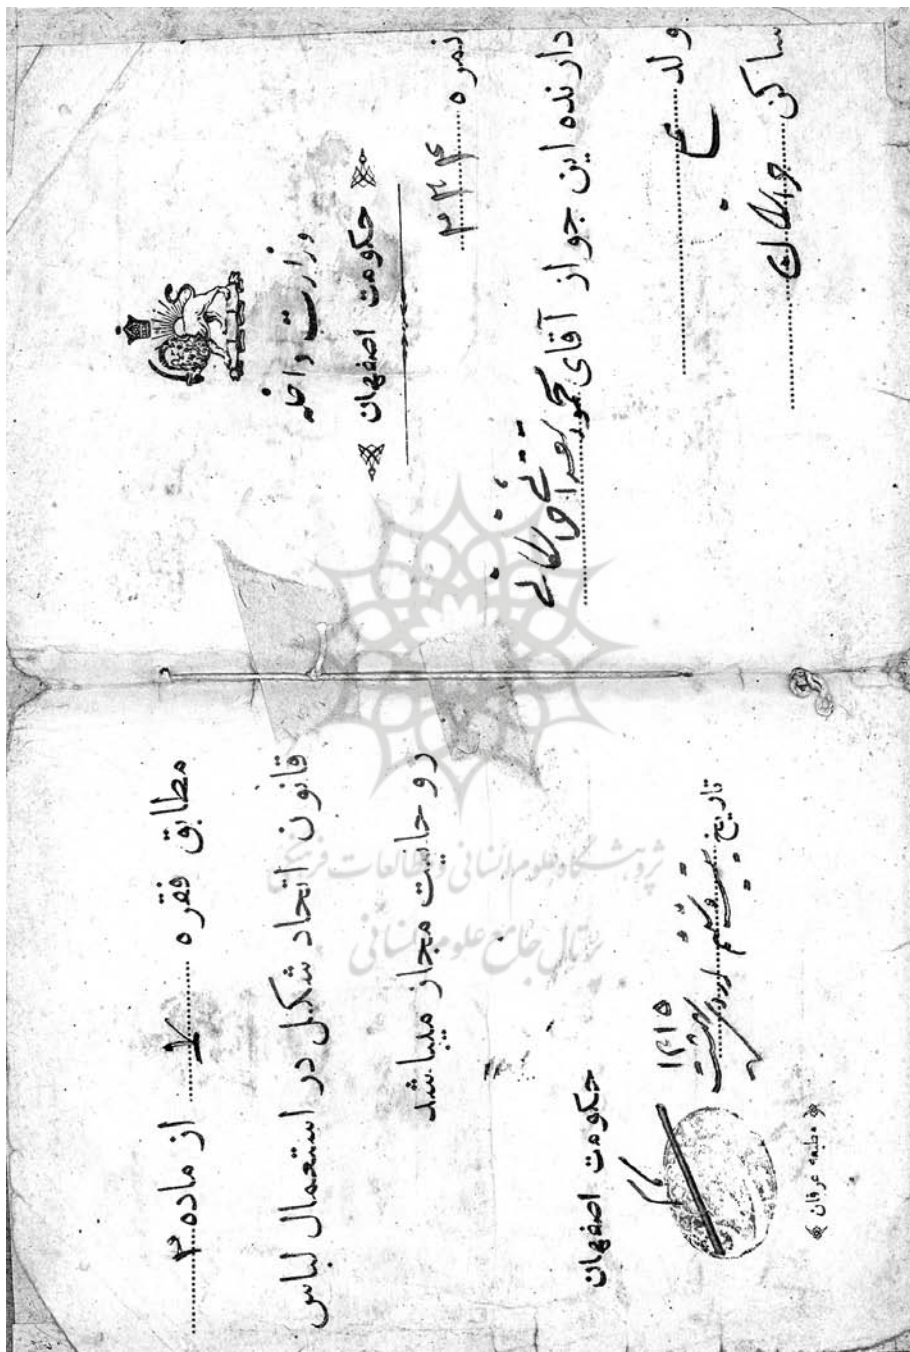 وزارت داخله
حکومت اصفهان
نمره ۲۳۴
دارنده این جواز آقای
ولد
ساکن
مطابق فقره ۷ از ماده ۲
قانون اتحاد شکل در استعمال لباس
روحانیت مجاز میباشد
تاریخ
۱۳۱۵
حکومت اصفهان
مطبعه عرفان
پژوهشگاه علوم انسانی و مطالعات فرهنگی
پرتال جامع علوم انسانی